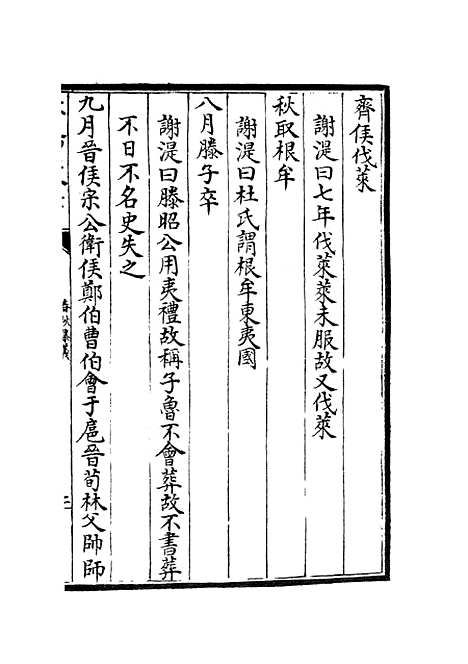 齊侯伐萊
謝湜曰七年伐萊萊未服故又伐萊
秋取根牟
謝湜曰杜氏謂根牟東夷國
八月滕子卒
謝湜曰滕昭公用夷禮故稱子魯不會葬故不書葬
不日不名史失之
九月晉侯宋公衛侯鄭伯曹伯會于扈晉荀林父帥師
春秋集義